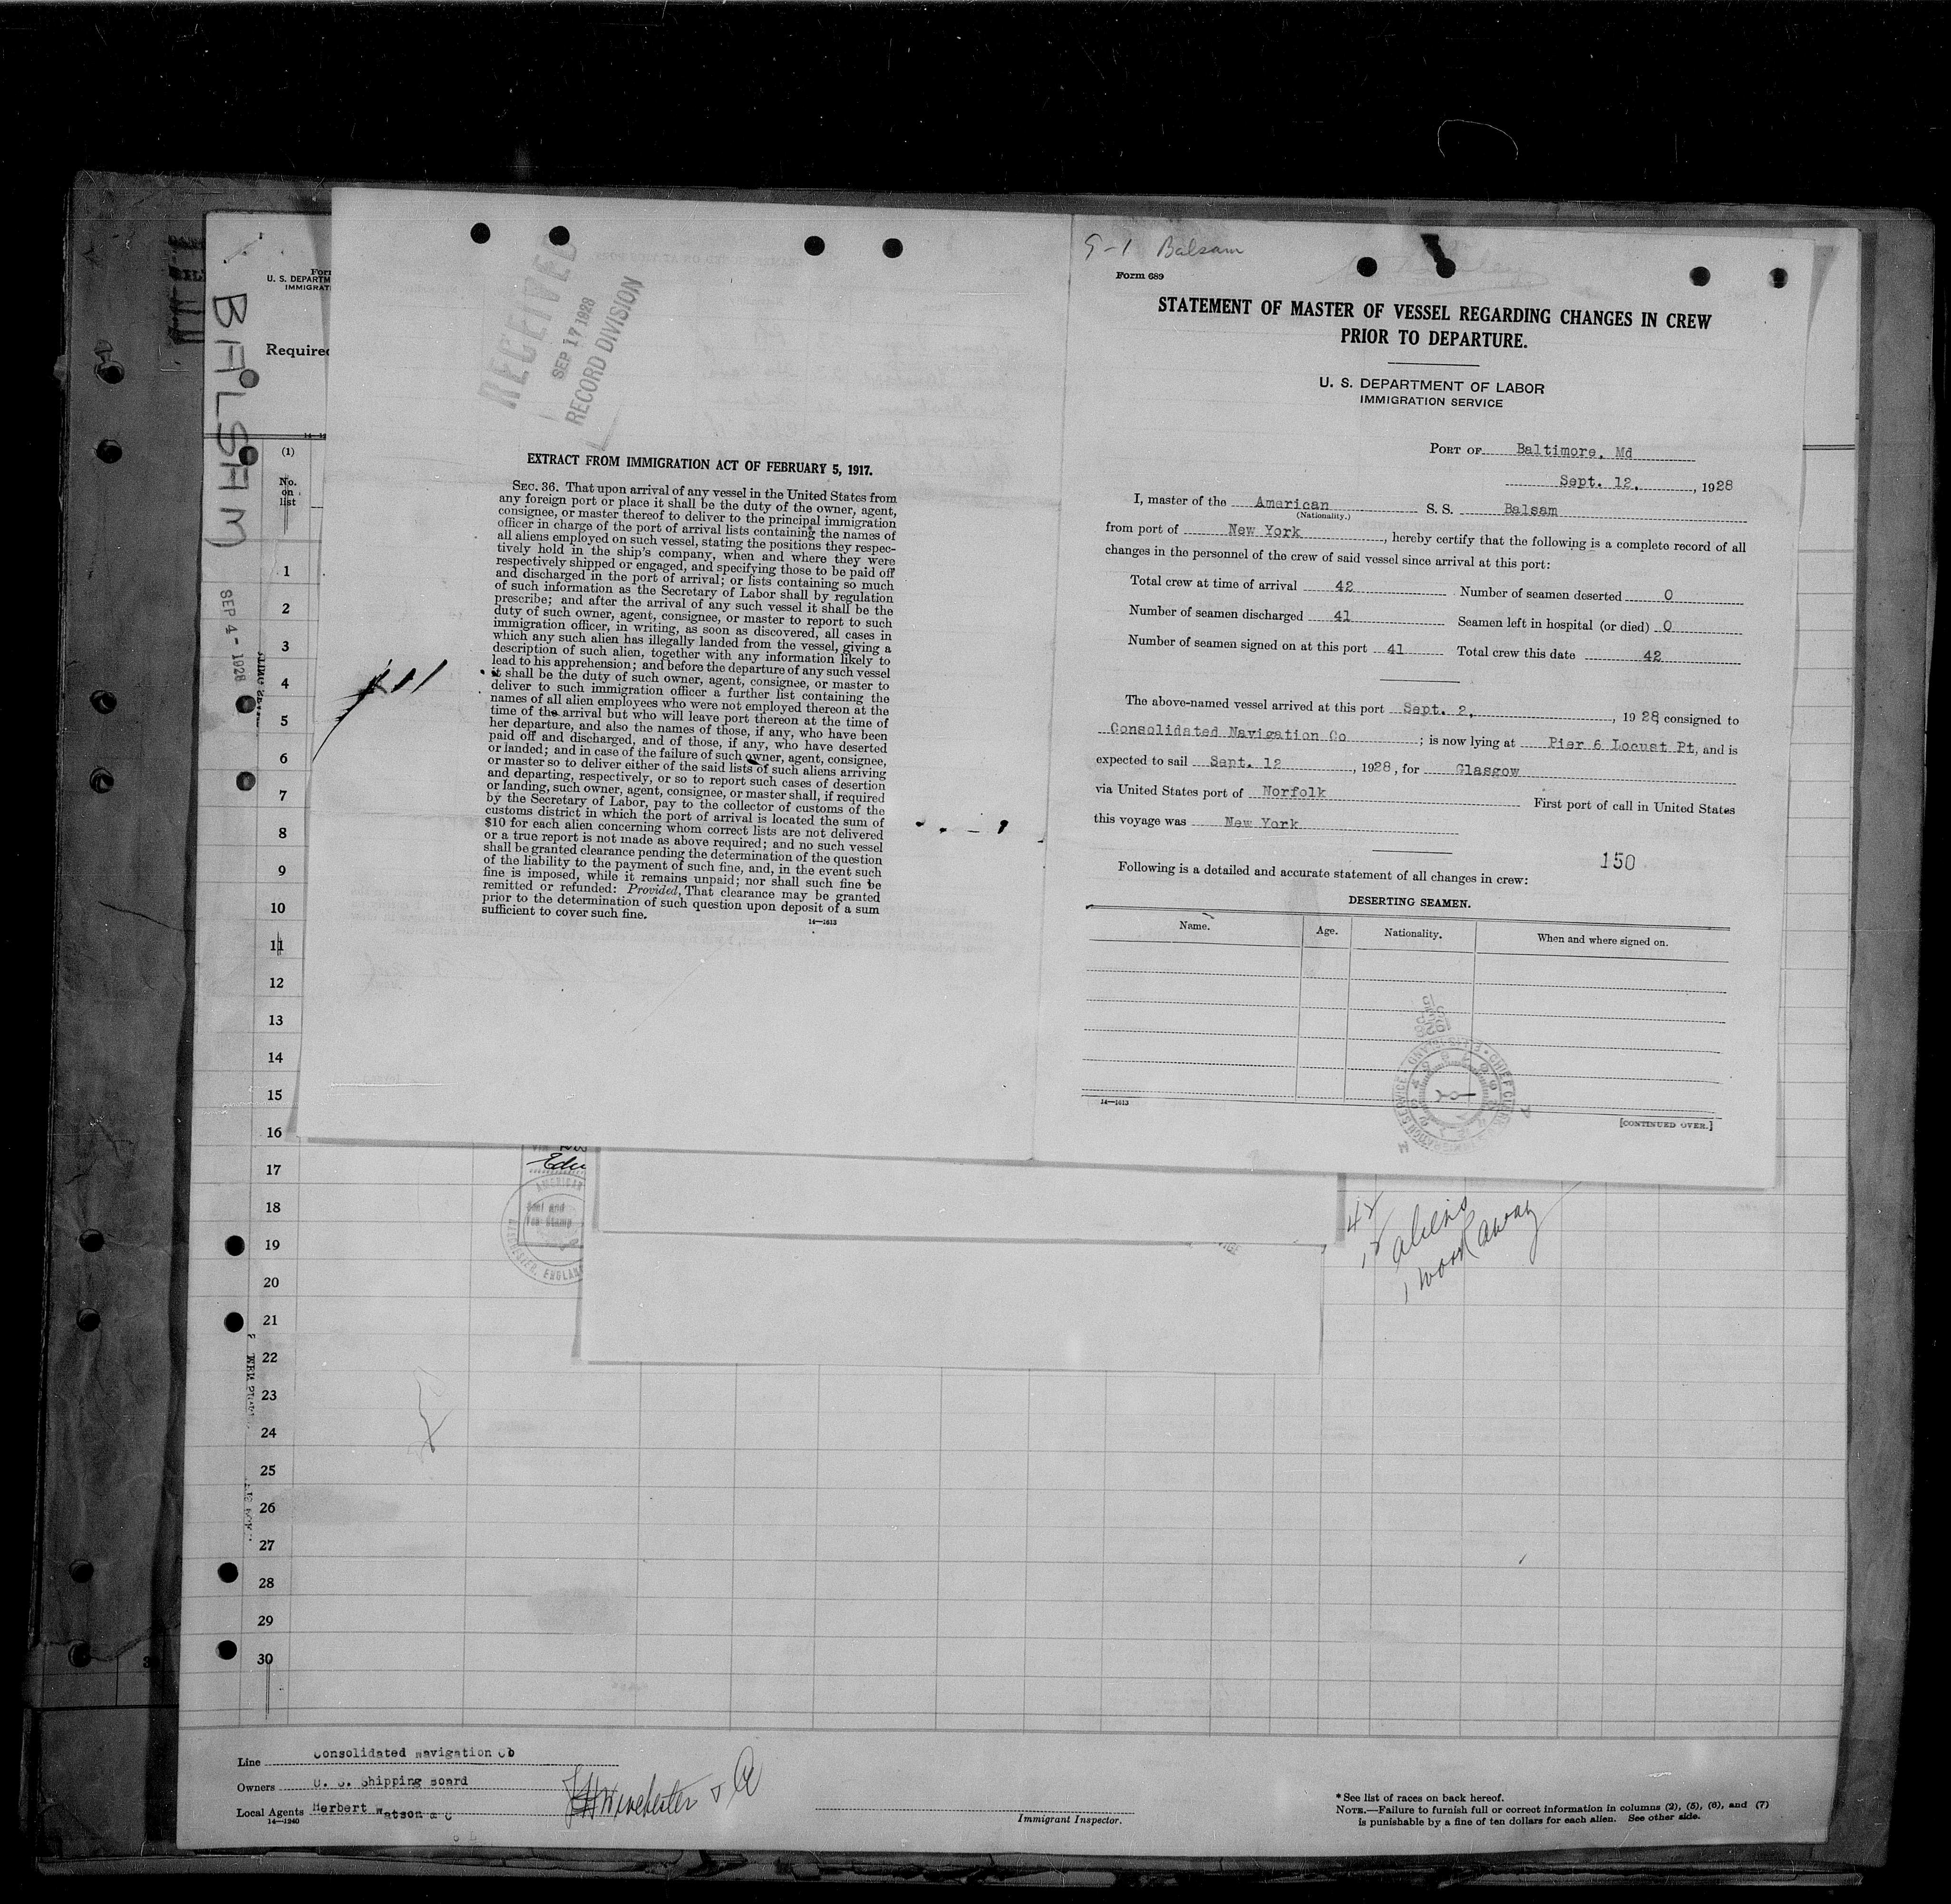 BALSAM
SEP 4 - 1928
U. S. DEPARTM
IMMIGRAT
Required
(1)
No.
on
list
1
2
3
4
5
6
7
8
9
10
11
12
13
14
15
16
17
18
19
20
21
22
23
24
25
26
27
28
29
30
RECEIVED
SEP 17 1928
RECORD DIVISION
EXTRACT FROM IMMIGRATION ACT OF FEBRUARY 5, 1917.
SEC. 36. That upon arrival of any vessel in the United States from
any foreign port or place it shall be the duty of the owner, agent,
consignee, or master thereof to deliver to the principal immigration
officer in charge of the port of arrival lists containing the names of
all aliens employed on such vessel, stating the positions they respec-
tively hold in the ship's company, when and where they were
respectively shipped or engaged, and specifying those to be paid off
and discharged in the port of arrival; or lists containing so much
of such information as the Secretary of Labor shall by regulation
prescribe; and after the arrival of any such vessel it shall be the
duty of such owner, agent, consignee, or master to report to such
immigration officer, in writing, as soon as discovered, all cases in
which any such alien has illegally landed from the vessel, giving a
description of such alien, together with any information likely to
lead to his apprehension; and before the departure of any such vessel
it shall be the duty of such owner, agent, consignee, or master to
deliver to such immigration officer a further list containing the
names of all alien employees who were not employed thereon at the
time of the arrival but who will leave port thereon at the time of
her departure, and also the names of those, if any, who have been
paid off and discharged, and of those, if any, who have deserted
or landed; and in case of the failure of such owner, agent, consignee,
or master so to deliver either of the said lists of such aliens arriving
and departing, respectively, or so to report such cases of desertion
or landing, such owner, agent, consignee, or master shall, if required
by the Secretary of Labor, pay to the collector of customs of the
customs district in which the port of arrival is located the sum of
$10 for each alien concerning whom correct lists are not delivered
or a true report is not made as above required; and no such vessel
shall be granted clearance pending the determination of the question
of the liability to the payment of such fine, and, in the event such
fine is imposed, while it remains unpaid; nor shall such fine be
remitted or refunded: Provided, That clearance may be granted
prior to the determination of such question upon deposit of a sum
sufficient to cover such fine.
14—1613
9-1 Balsam
Form 689
STATEMENT OF MASTER OF VESSEL REGARDING CHANGES IN CREW
PRIOR TO DEPARTURE.
U. S. DEPARTMENT OF LABOR
IMMIGRATION SERVICE
PORT OF Baltimore, Md
Sept. 12, , 1928
I, master of the American S. S. Balsam
(Nationality.)
from port of New York, hereby certify that the following is a complete record of all
changes in the personnel of the crew of said vessel since arrival at this port:
Total crew at time of arrival 42 Number of seamen deserted 0
Number of seamen discharged 41 Seamen left in hospital (or died) 0
Number of seamen signed on at this port 41 Total crew this date 42
The above-named vessel arrived at this port Sept. 2, , 1928, consigned to
Consolidated Navigation Co; is now lying at Pier 6 Locust Pt, and is
expected to sail Sept. 12, 1928, for Glasgow
via United States port of Norfolk First port of call in United States
this voyage was New York
150
Following is a detailed and accurate statement of all changes in crew:
DESERTING SEAMEN.
Name. Age. Nationality. When and where signed on.
14—1613
[CONTINUED OVER.]
AMERICAN
MANCHESTER, ENGLAND
42
12 aliens
1 workaway
Line Consolidated Navigation Co
Owners U. S. Shipping Board
Local Agents Herbert Watson & C
14—1240
Winchester & Co
Immigrant Inspector.
* See list of races on back hereof.
NOTE.—Failure to furnish full or correct information in columns (2), (5), (6), and (7)
is punishable by a fine of ten dollars for each alien. See other side.